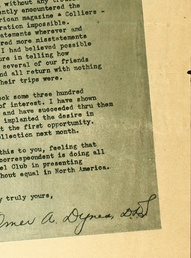 without any crow
ntly encountered the
rican magazine & Colliers -
ration impossible.
tatements wherever and
red more misstatements
I had believed possible
ore in telling how
several of our friends
nd all return with nothing
their trips were.
ook some three hundred
of interest. I have shown
and have succeeded thru them
implanted the desire in
t the first opportunity.
llection next month.
this to you, feeling that
correspondent is doing all
el Club in presenting
hout equal in North America.
y truly yours,
Omer A. Dynes, DDS